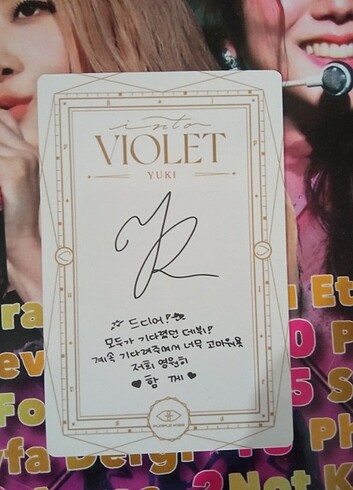 into
VIOLET
YUKI
드디어!
모두가 기다렸던 데뷔!
계속 기다려주셔서 너무 고마워용
저희 영원히
♥ 함께 ♥
PURPLE KISS
ra
u Et
ev
0 P
Fo
5 S
yfa Dergi
Ph
2 Not K